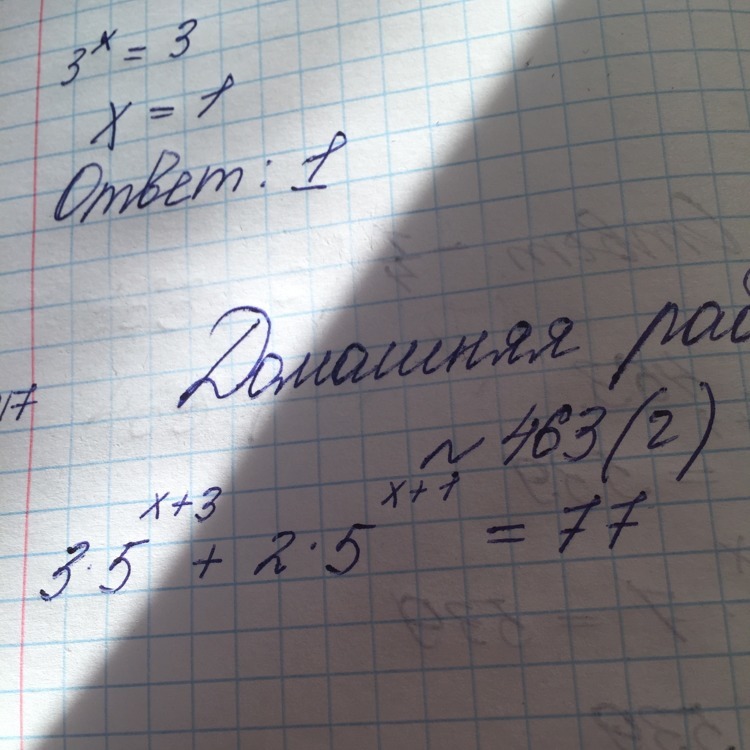 3^x = 3
x = 1
Ответ: 1
Домашняя раб
17
~ 463(2)
3·5^{x+3} + 2·5^{x+1} = 77